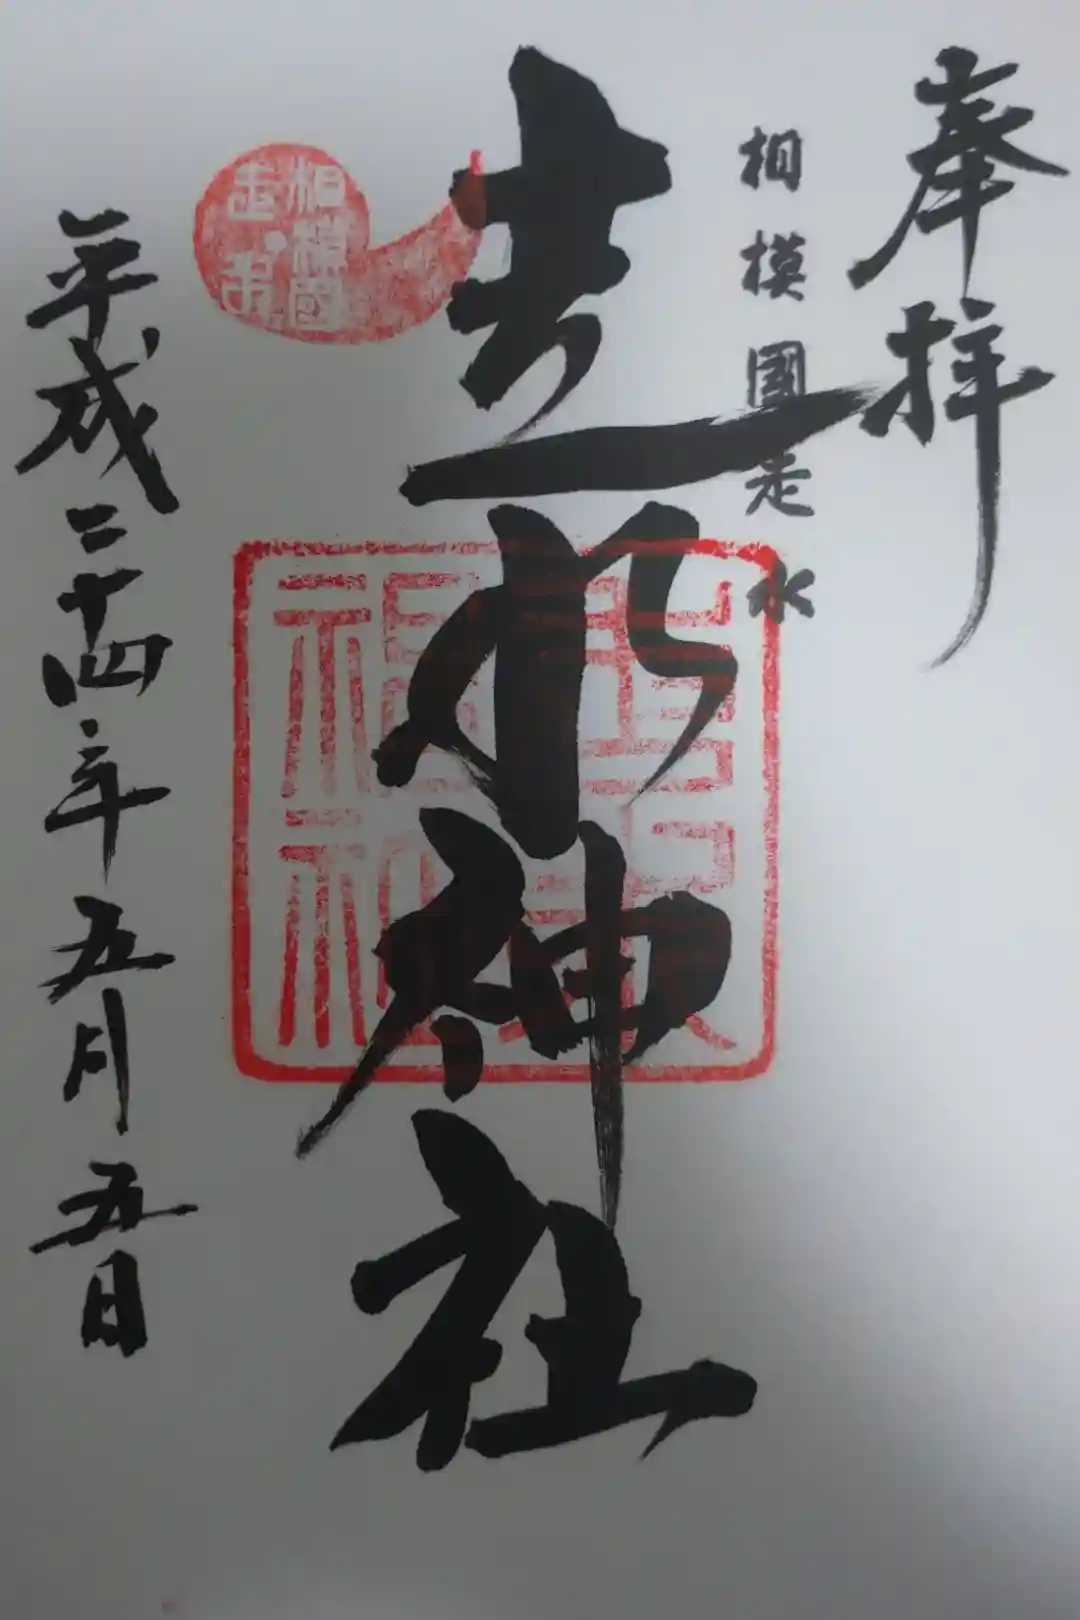 奉拝
相模國走水
走水神社
相模國
走水
走水神社
平成二十四年五月五日